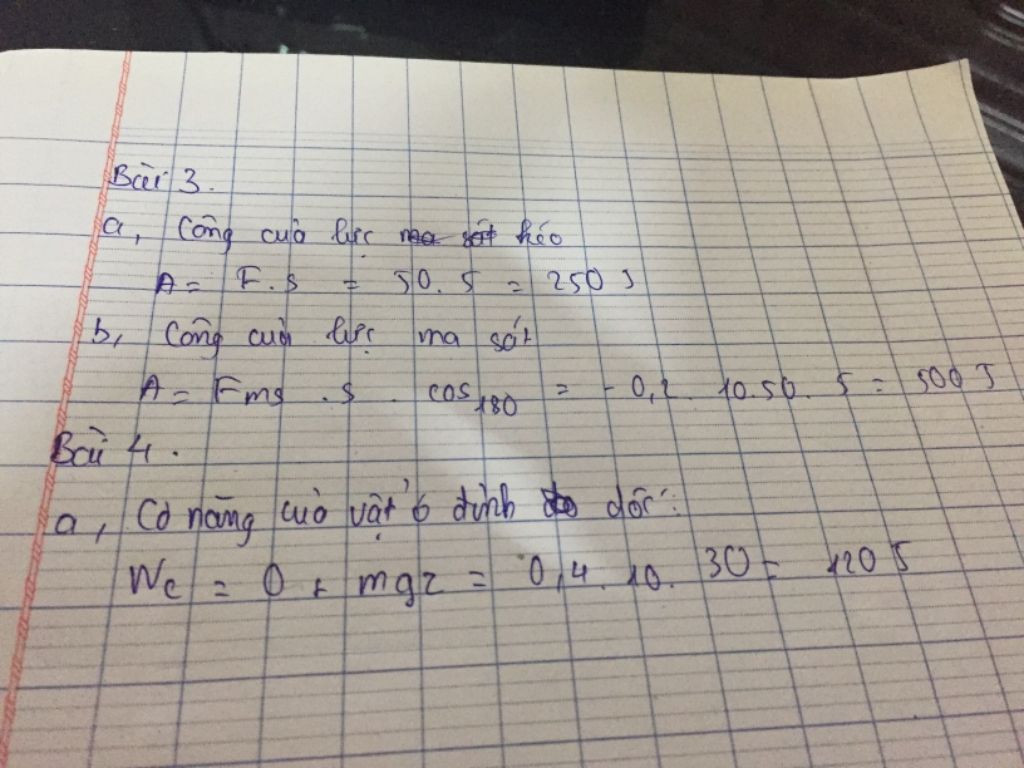 Bài 3.
a, Công của lực ma sát kéo
A = F.s = 50.5 = 250 J
b, Công của lực ma sát
A = Fms . s . cos180 = - 0,2 . 10.50. 5 = 500 J
Bài 4.
a, Cơ năng của vật ở đỉnh dốc:
Wc = 0 + mgz = 0,4 . 10. 30 = 120 J